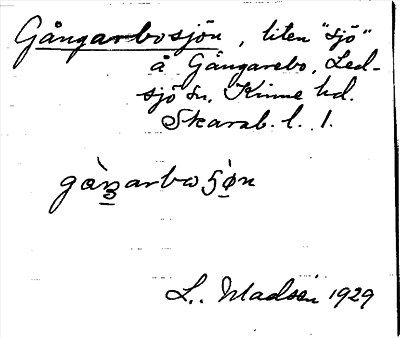 Gångarbosjön, liten "sjö"
å Gångarebo, Led-
sjö sn, Kinne hd.
Skarab. l. 1.
L. Madsén 1929